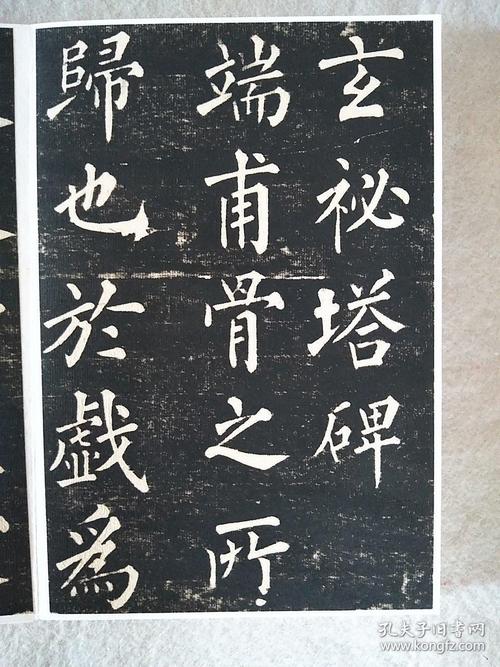 玄祕塔碑
端甫骨之所
歸也於戲為
孔夫子旧书网
www.kongfz.com